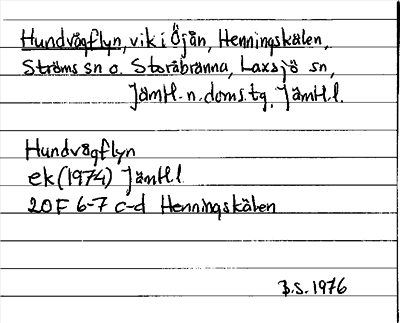 Hundvågflyn, vik i Öjån, Henningskälen,
Ströms sn o. Storåbränna, Laxsjö sn,
Jämtl. n. doms. tg, Jämtl. l.
Hundvågflyn
ek (1974) Jämtl. l.
20F 6-7 c-d Henningskälen
B.S. 1976